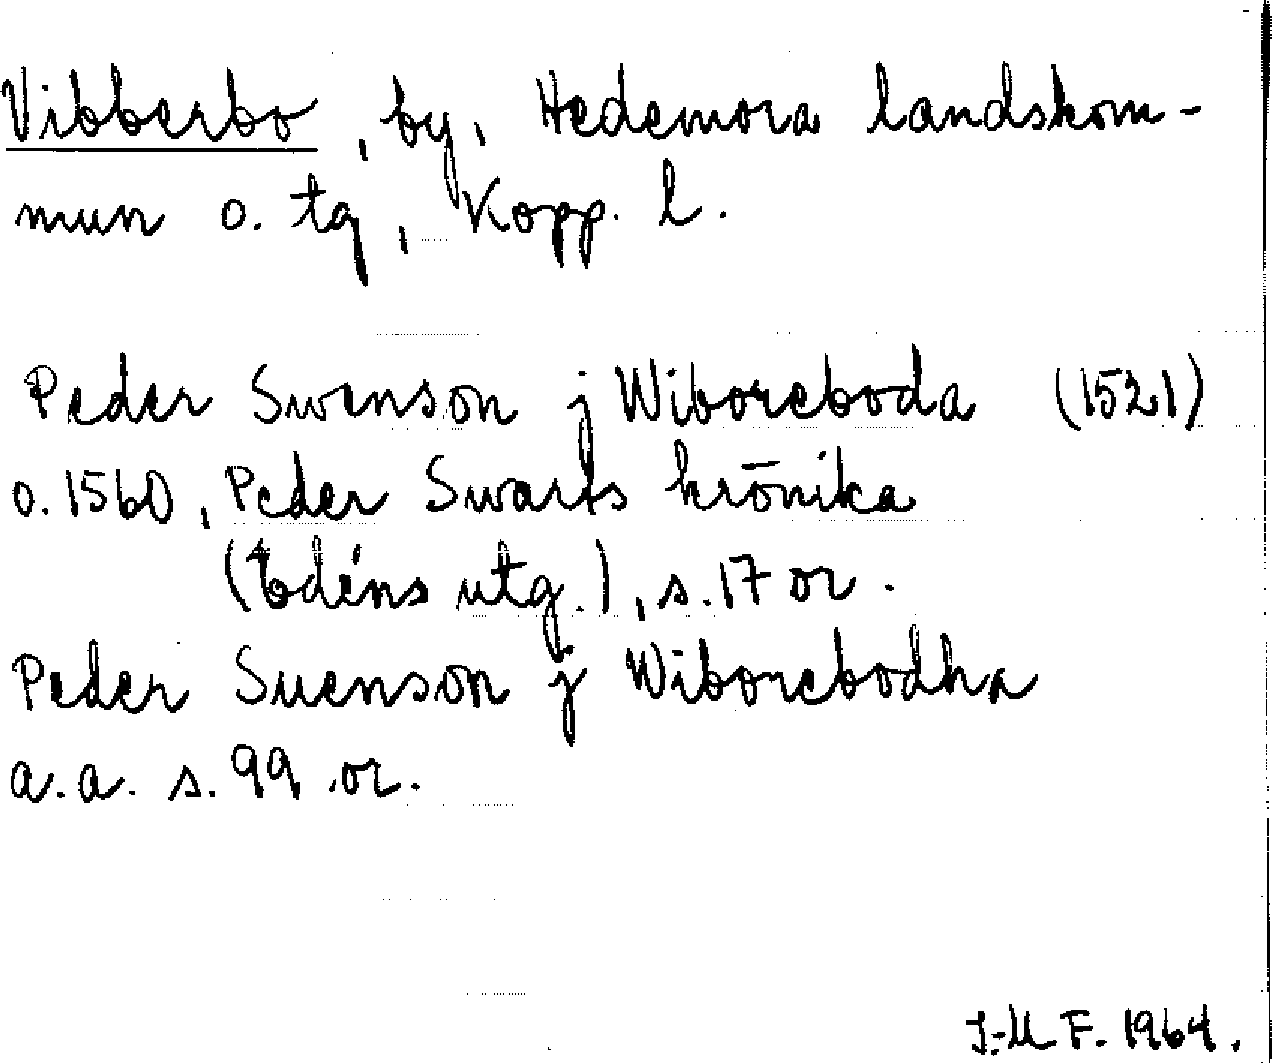 Vibberbo, by, Hedemora landskom-
mun o. tg, Kopp. l.
Peder Swenson j Wiboreboda (1521)
o. 1560, Peder Swarts krönika
(Edéns utg.), s. 17 or.
Peder Suenson j Wiborebodha
a.a. s. 99 or.
I-M F. 1964.